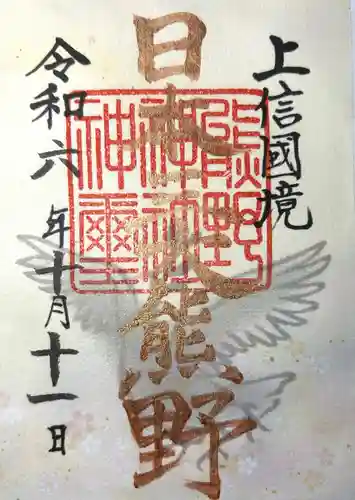 上信國境
日本三大熊野
熊野
神社
神璽
令和六年十月十一日